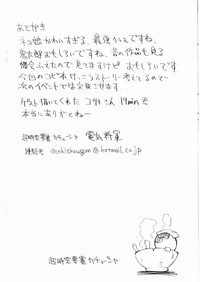 あとがき
ネコ娘かわいすぎる、最強クラスですね。
鬼太郎おもしろいですね、昔の作品も見る
機会ふえたので見てますけど おもしろいです
今回のコピー本 けっこうストーリー考えてるので
次のイベントでは完売させます。
ゲスト描いてくれた コサトさん 17min君
本当にありがとねー
超時空要塞カチューシャ 電気将軍
連絡先 denkishougun@hotmail.co.jp
超時空要塞カチューシャ